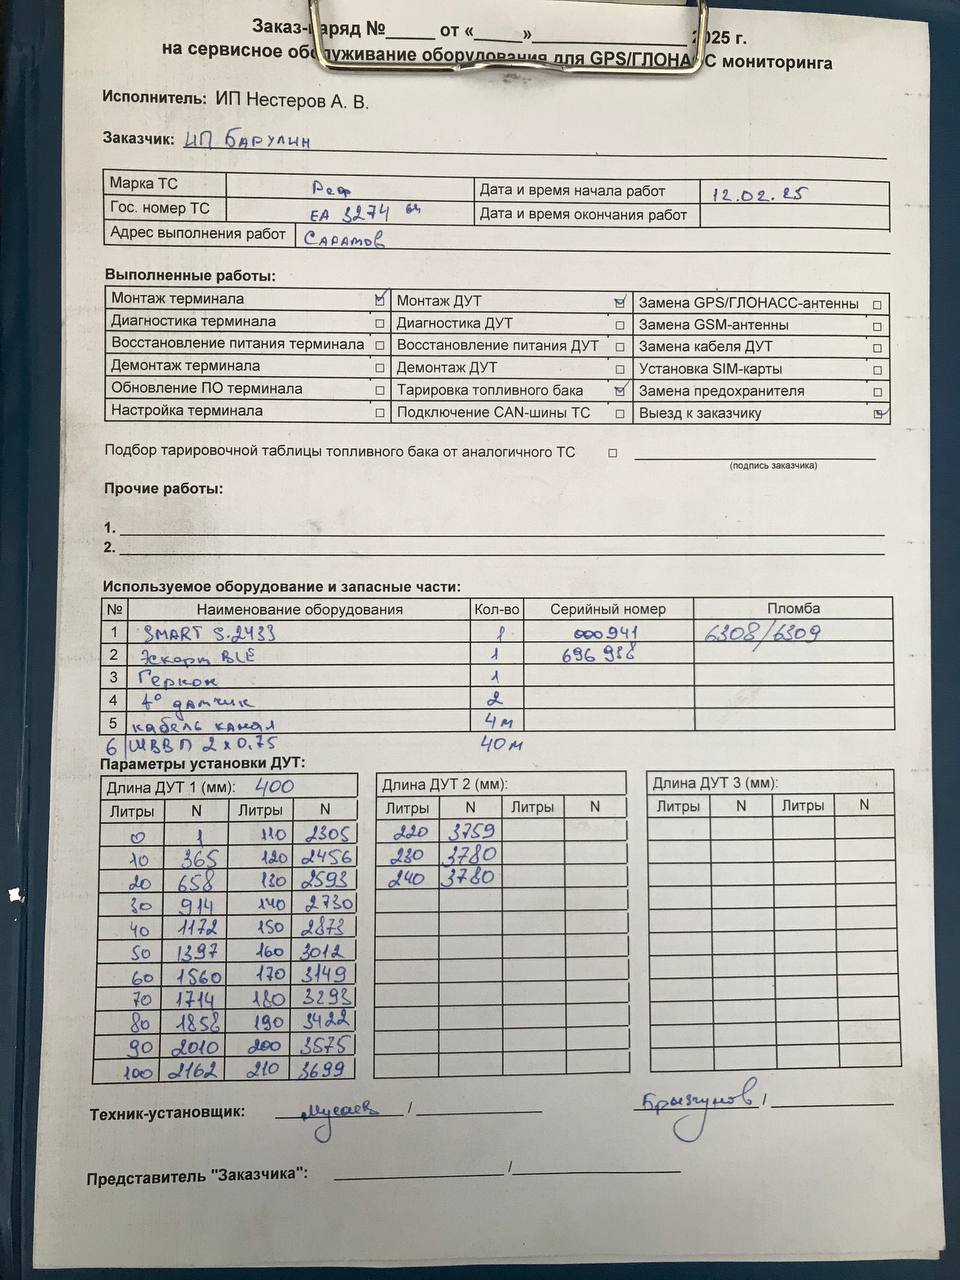 Заказ-наряд №_____ от «_____»_________________ 2025 г.
на сервисное обслуживание оборудования для GPS/ГЛОНАСС мониторинга
Исполнитель: ИП Нестеров А. В.
Заказчик: ИП БАРУЛИН
Марка ТС Реф Дата и время начала работ 12.02.25
Гос. номер ТС ЕА 3274 Дата и время окончания работ
Адрес выполнения работ САРАТОВ
Выполненные работы:
Монтаж терминала ☑ Монтаж ДУТ ☑ Замена GPS/ГЛОНАСС-антенны ☐
Диагностика терминала ☐ Диагностика ДУТ ☐ Замена GSM-антенны ☐
Восстановление питания терминала ☐ Восстановление питания ДУТ ☐ Замена кабеля ДУТ ☐
Демонтаж терминала ☐ Демонтаж ДУТ ☐ Установка SIM-карты ☐
Обновление ПО терминала ☐ Тарировка топливного бака ☑ Замена предохранителя ☐
Настройка терминала ☐ Подключение CAN-шины ТС ☐ Выезд к заказчику ☑
Подбор тарировочной таблицы топливного бака от аналогичного ТС ☐
(подпись заказчика)
Прочие работы:
1.
2.
Используемое оборудование и запасные части:
№ Наименование оборудования Кол-во Серийный номер Пломба
1 SMART S-2433 1 000941 6308/6309
2 Эскорт BLE 1 696938
3 Геркон 1
4 t° датчик 2
5 кабель канал 4м
6 ШВВП 2x0.75 40м
Параметры установки ДУТ:
Длина ДУТ 1 (мм): 400 Длина ДУТ 2 (мм): Длина ДУТ 3 (мм):
Литры N Литры N Литры N Литры N Литры N Литры N
0 1 110 2305 220 3759
10 365 120 2456 230 3780
20 658 130 2593 240 3780
30 914 140 2730
40 1172 150 2873
50 1397 160 3012
60 1560 170 3149
70 1714 180 3293
80 1858 190 3422
90 2010 200 3575
100 2162 210 3699
Техник-установщик: Мусаев / Брызгунов /
Представитель "Заказчика": /